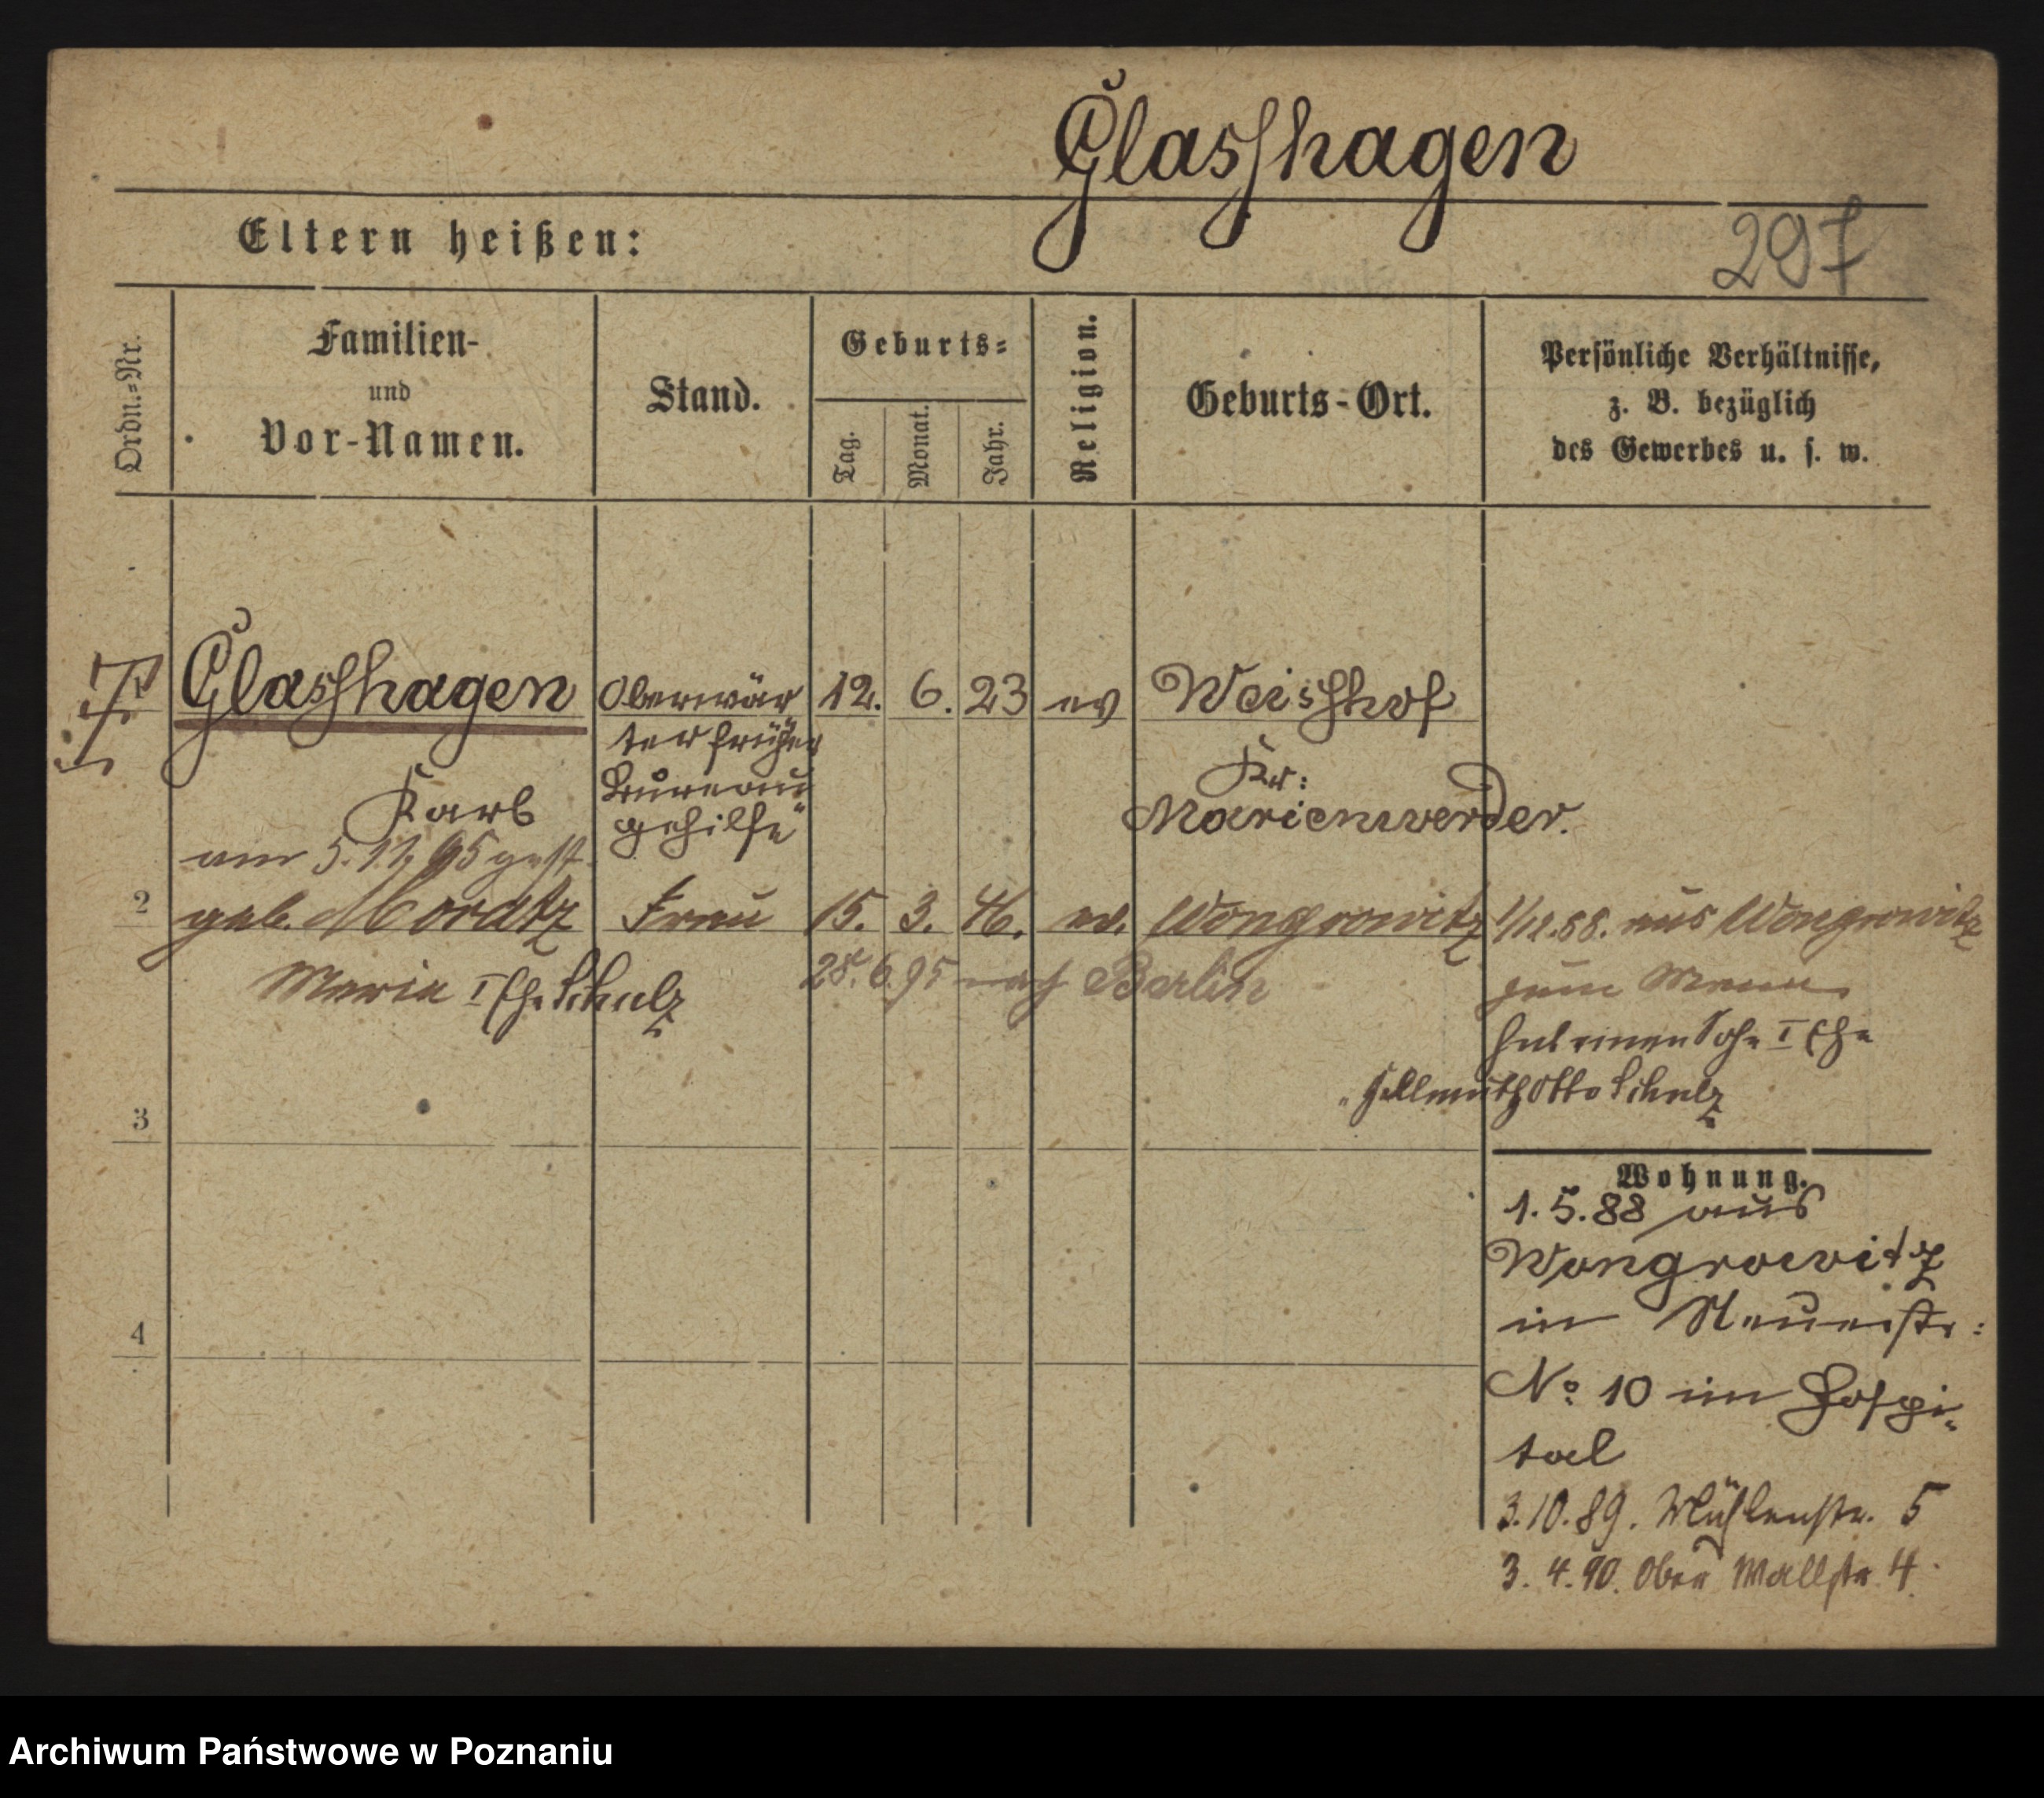 Glasshagen
Eltern heißen:
297
Ordn.=Nr.
Familien-
und
Vor-Namen.
Stand.
Geburts=
Tag.
Monat.
Jahr.
Religion.
Geburts-Ort.
Persönliche Verhältnisse,
z. B. bezüglich
des Gewerbes u. s. w.
Glasshagen Oberwär 12. 6. 23 ev Weisshof
ter früher
Kr:
Karl Bureau
gehilfe Marienwerder.
am 5. 11. 95 gest.
2 geb. Moratz Frau 15. 3. 46. ev. Wongrowitz 1/12.88. aus Wongrowitz
Maria I Ehe Schulz 28. 6. 95 nach Berlin zum Mann
hat einen Sohn I Ehe
"Hellmuth Otto Schulz
3
Wohnung.
1. 5. 88 aus
Wongrowitz
in Neuestr:
4
No 10 im Hospi-
tal
3. 10. 89. Mühlenstr. 5
3. 4. 90. Ober Wallstr. 4.
Archiwum Państwowe w Poznaniu